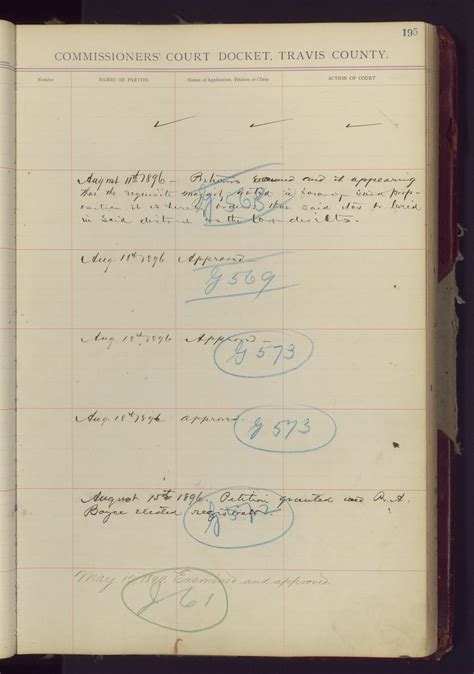 195
COMMISSIONERS' COURT DOCKET, TRAVIS COUNTY.
Number NAMES OF PARTIES Names of Application, Petition or Claim ACTION OF COURT
August 11th 1896 — Returns Examined and it appearing
that the requisite majority voted in favor of said prop-
osition it is hereby ordered that said tax be levied
in said district as the law directs.
J 563
Aug. 18th 1896 Approved —
J 569
Aug 18th 1896 Approved —
J 573
Aug. 18th 1896 approved
J 573
August 15th 1896. Petition granted and R. A.
Boyce elected registrator.
J 572
May 1899 Examined and approved.
J 61